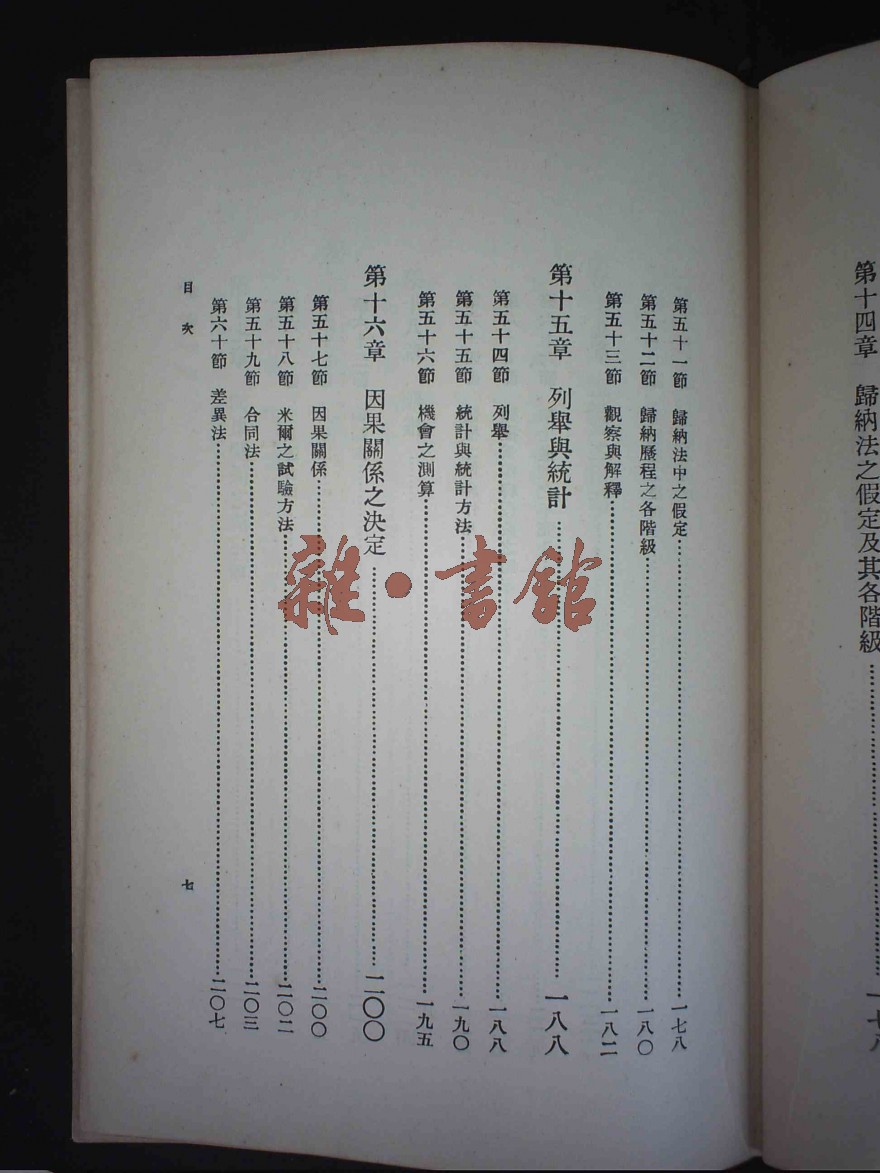 第十四章　歸納法之假定及其各階級……一七八
第五十一節　歸納法中之假定……一七八
第五十二節　歸納歷程之各階級……一八〇
第五十三節　觀察與解釋……一八二
第十五章　列舉與統計……一八八
第五十四節　列舉……一八八
第五十五節　統計與統計方法……一九〇
第五十六節　機會之測算……一九五
第十六章　因果關係之決定……二〇〇
第五十七節　因果關係……二〇〇
第五十八節　米爾之試驗方法……二〇二
第五十九節　合同法……二〇三
第六十節　差異法……二〇七
目次
七
雜·書館